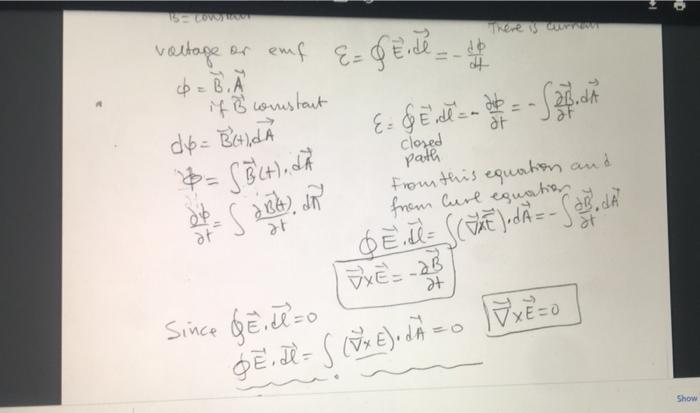 B = constant
There is current
voltage or emf ε = ∮E⃗.dl⃗ = - dϕ/dt
ϕ = B⃗.A⃗
if B⃗ constant
dϕ = B⃗(t).dA⃗
ε = ∮E⃗.dl⃗ = - ∂ϕ/∂t = - ∫ ∂B⃗/∂t . dA⃗
closed
path
ϕ = ∫B⃗(t).dA⃗
From this equation and
from curl equation
∂ϕ/∂t = ∫ ∂B⃗(t)/∂t . dA⃗
∮E⃗.dl⃗ = ∫(∇⃗xE⃗).dA⃗ = - ∫ ∂B⃗/∂t . dA⃗
∇⃗xE⃗ = - ∂B⃗/∂t
Since ∮E⃗.dl⃗ = 0
∇⃗xE⃗ = 0
∮E⃗.dl⃗ = ∫(∇⃗xE).dA⃗ = 0
Show